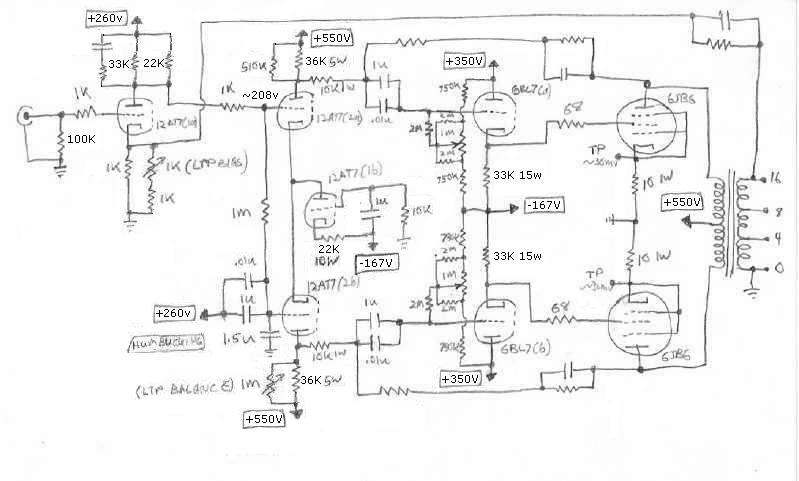 +260v
33K 22K
1K
100K
12AT7(1a)
1K
1K (LTP BIAS)
1K
1K
~208v
+550V
510K
36K 5W
10K 1W
12AT7(2a)
1u
.01u
+350V
750K
2M
1M
2M
2M
750K
6BL7(a)
68
6JB6
TP
~30mV
33K 15w
10 1W
-167V
+550V
16
8
4
0
12AT7(1b)
1u
10K
22K
10W
-167V
1M
.01u
1u
+260v
HUMBUCKING
1.5u
12AT7(2b)
10K 1W
1u
.01u
(LTP BALANCE) 1M
36K 5W
+550V
2M
2M
1M
2M
33K 15w
6BL7(b)
+350V
68
TP
10 1W
6JB6